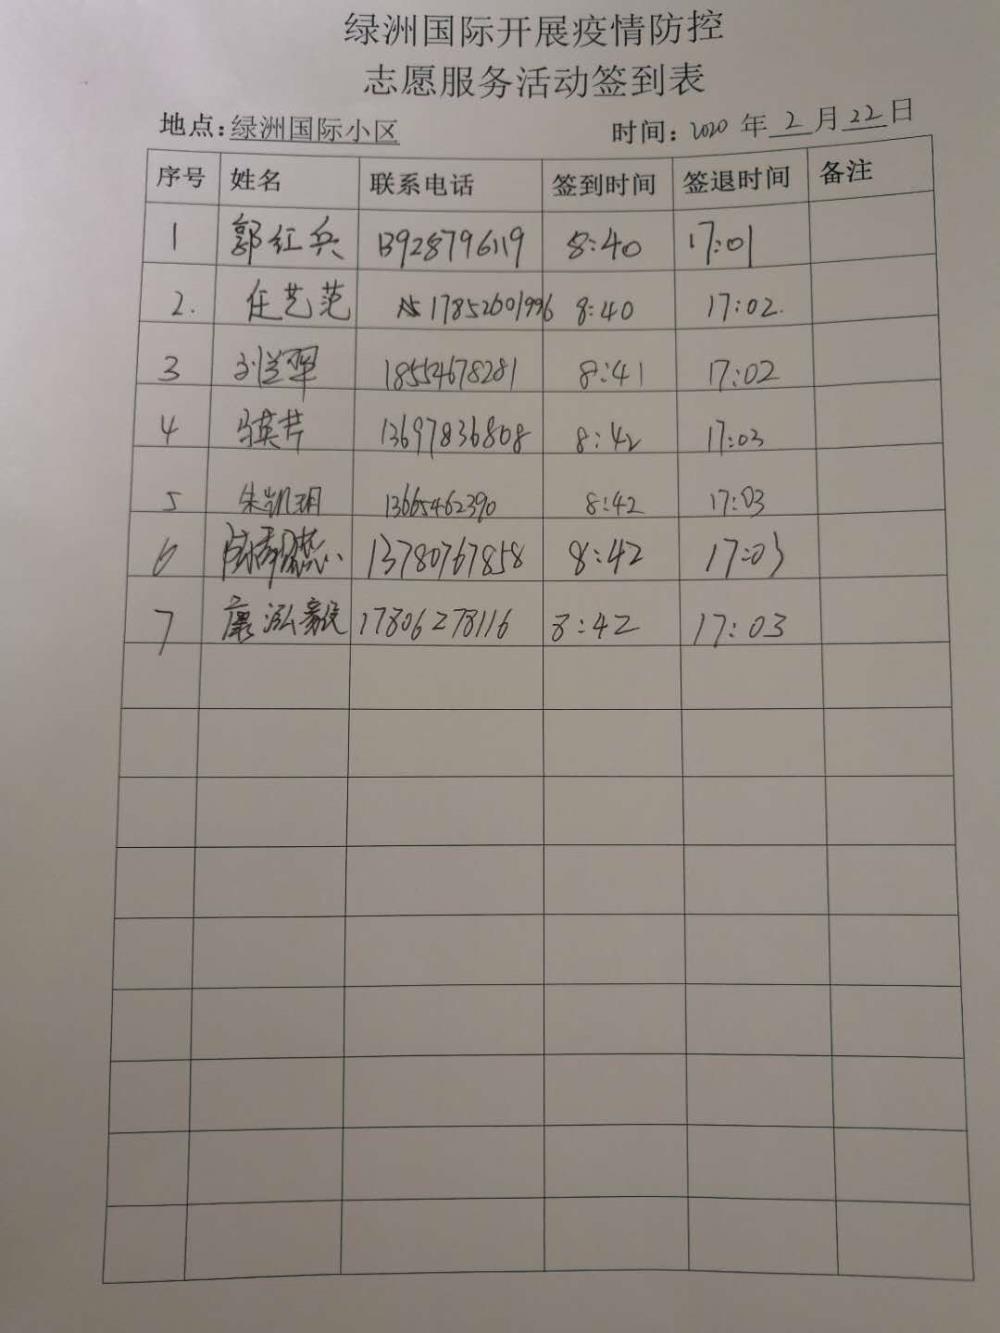 绿洲国际开展疫情防控
志愿服务活动签到表
地点:绿洲国际小区 时间: 2020 年 2 月 22 日
序号 姓名 联系电话 签到时间 签退时间 备注
1 郭红兵 13928796119 8:40 17:01
2. 任艺范 17852601996 8:40 17:02
3 18554678281 8:41 17:02
4 13697836808 8:42 17:03
5 朱凯玥 13665462390 8:42 17:03
6 13780767858 8:42 17:03
7 康泓毅 17806278116 8:42 17:03